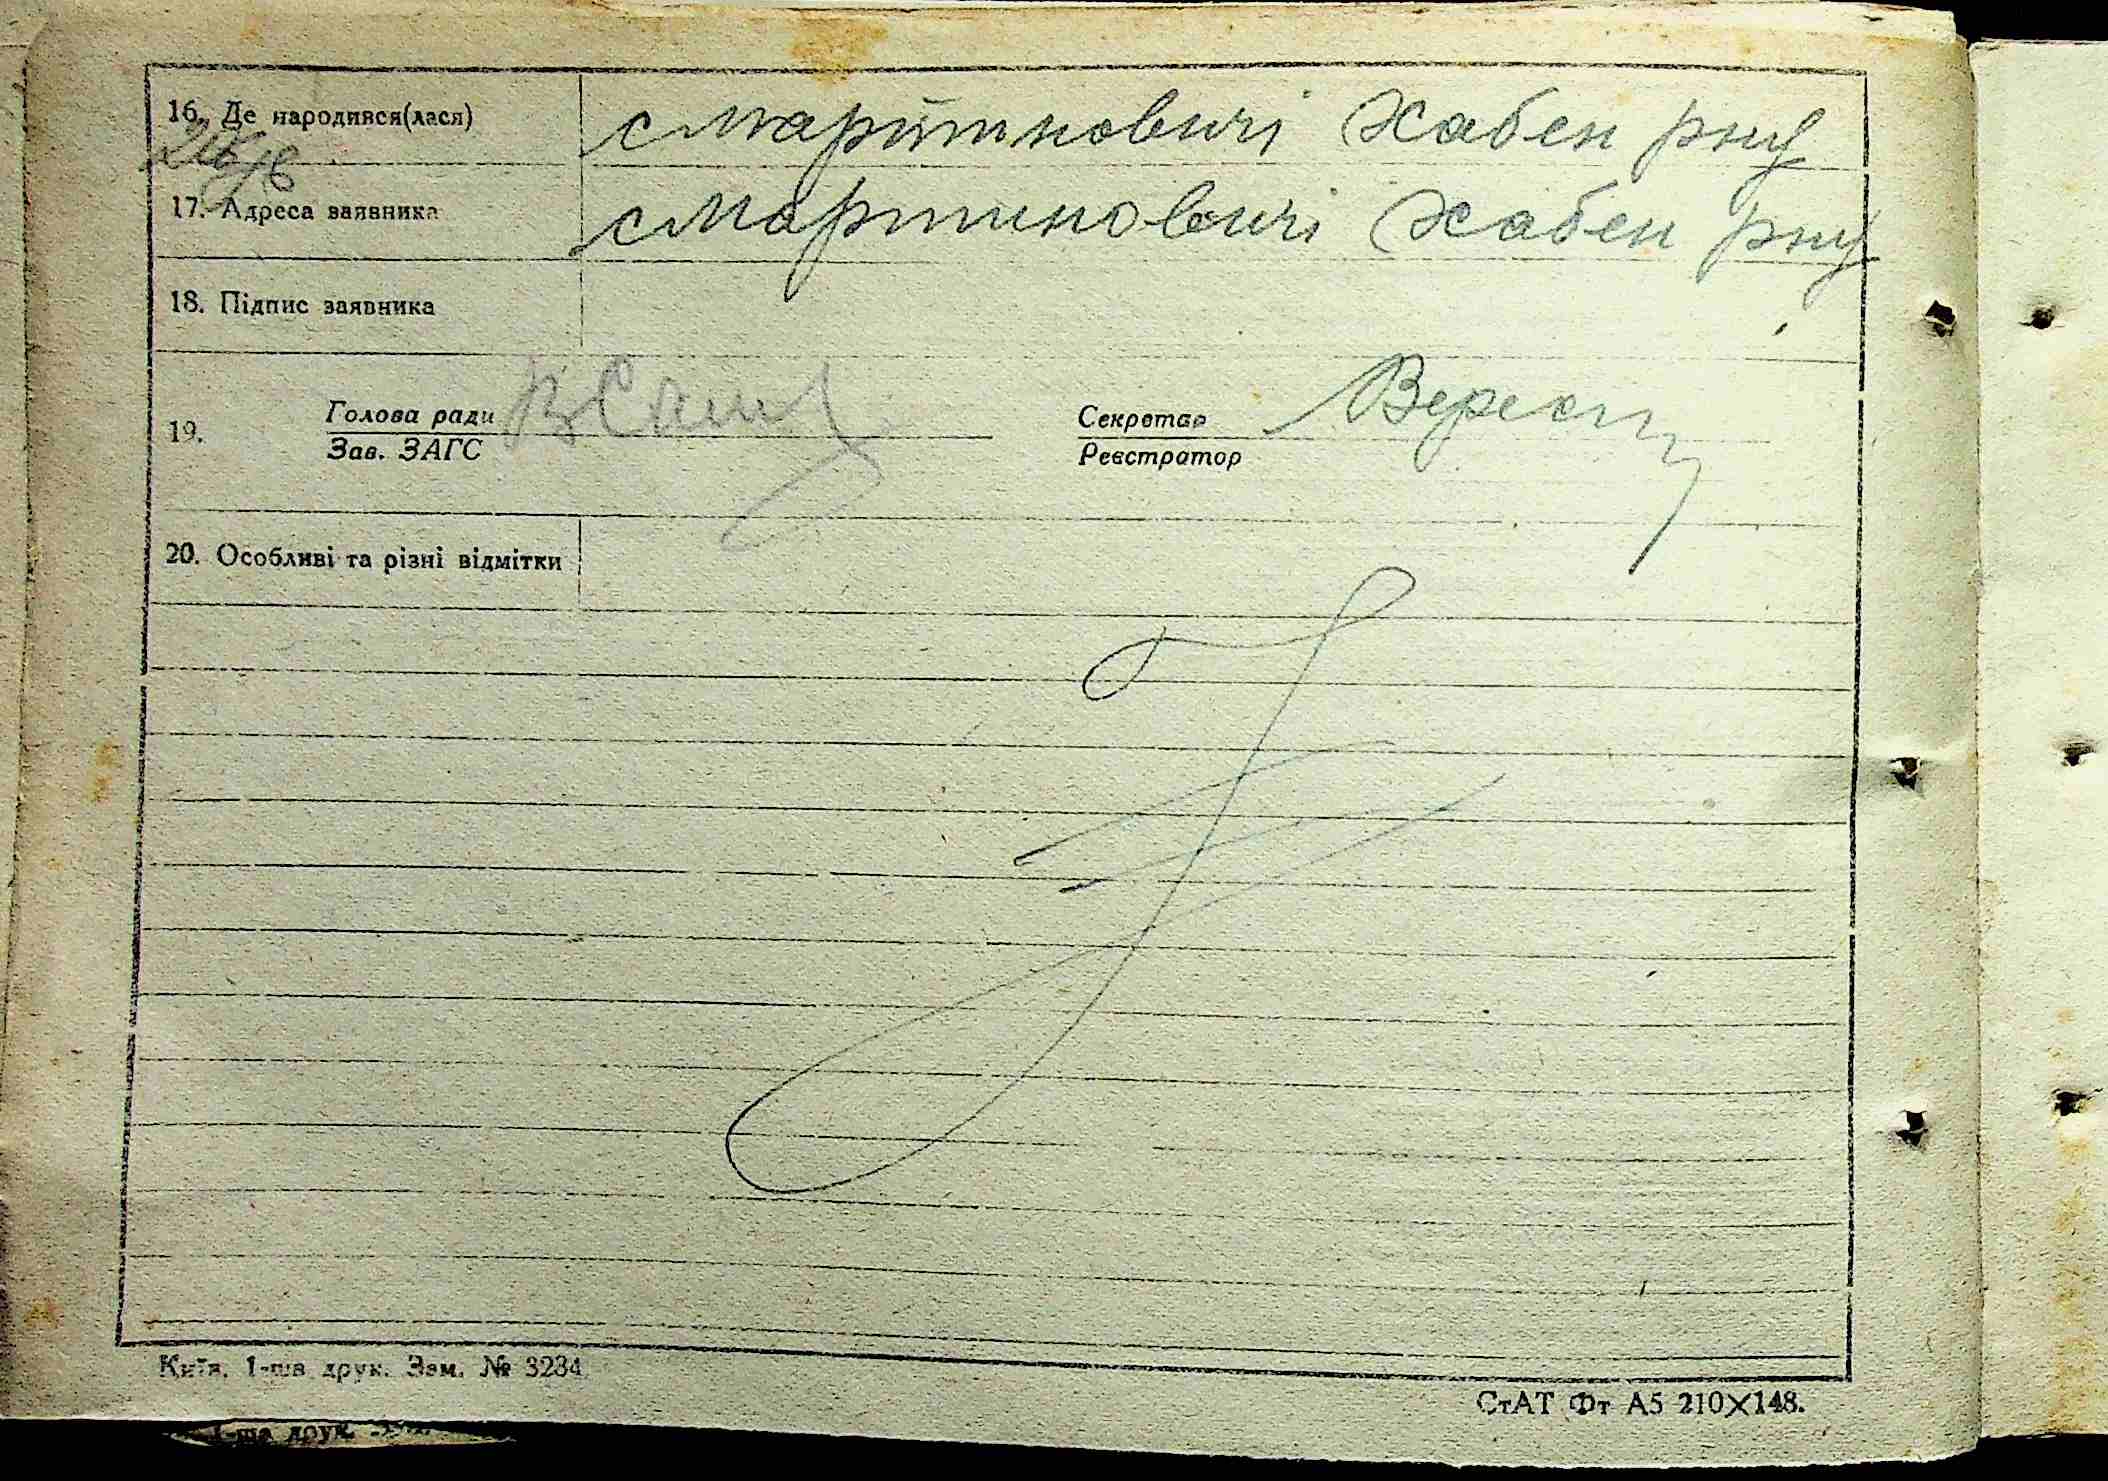 16. Де народився(лася) с Мартиновичі Хабен рну
17. Адреса заявника с Мартиновичі Хабен рну
18. Підпис заявника
19. Голова ради Секретар
Зав. ЗАГС Реєстратор
20. Особливі та різні відмітки
Київ. 1-ша друк. Зам. № 3234
СтАТ Фт А5 210×148.
1-ша друк.